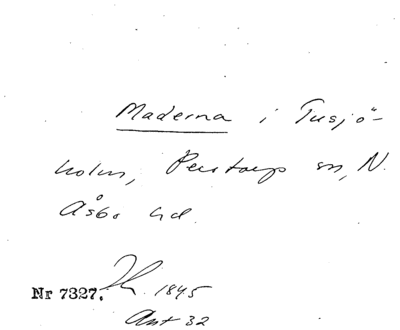 Maderna i Tusjö-
holm, Perstorp sn, N.
Åsbo hd.
Nr 7327. 1845
Ant 32